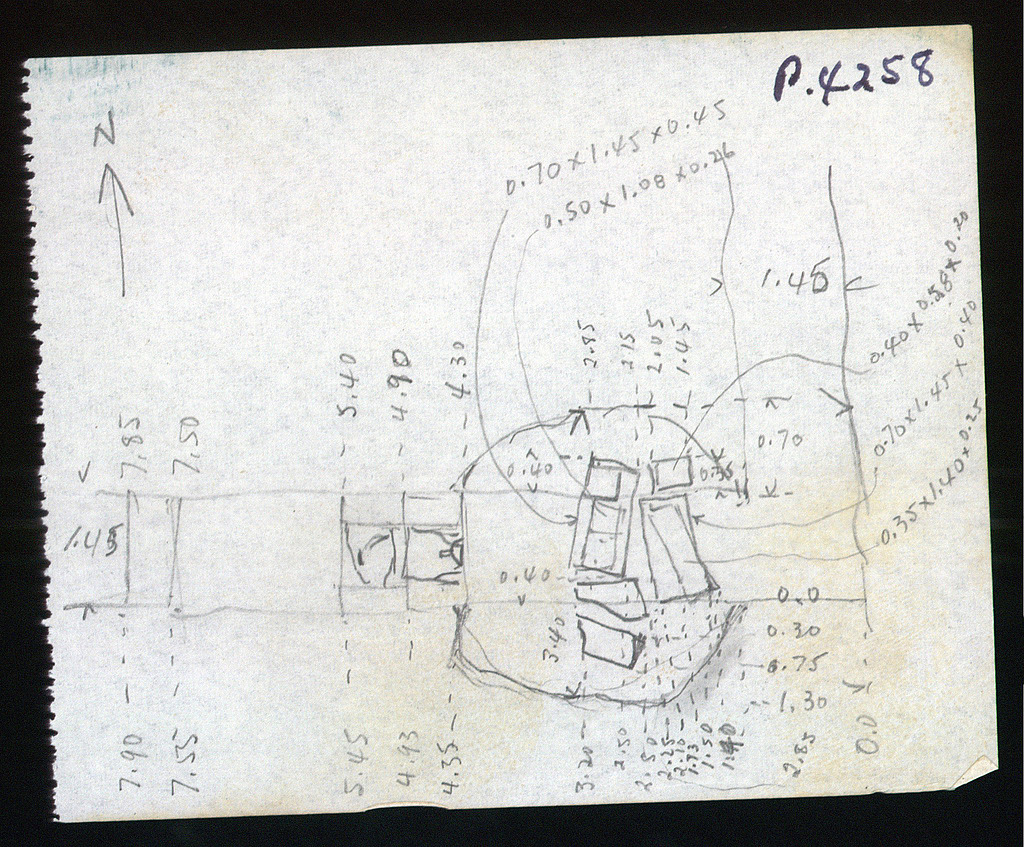 P.4258
N
0.70 x 1.45 x 0.45
0.50 x 1.08 x 0.26
1.45
0.40 x 0.58 x 0.20
0.70 x 1.45 x 0.40
0.35 x 1.40 x 0.25
7.85
7.50
5.40
4.90
4.30
2.85
2.15
2.05
1.45
0.70
0.40
1.45
0.40
3.40
0.0
0.30
0.75
1.30
7.90
7.55
5.45
4.93
4.35
3.20
2.50
2.10
1.73
1.50
2.85
0.0